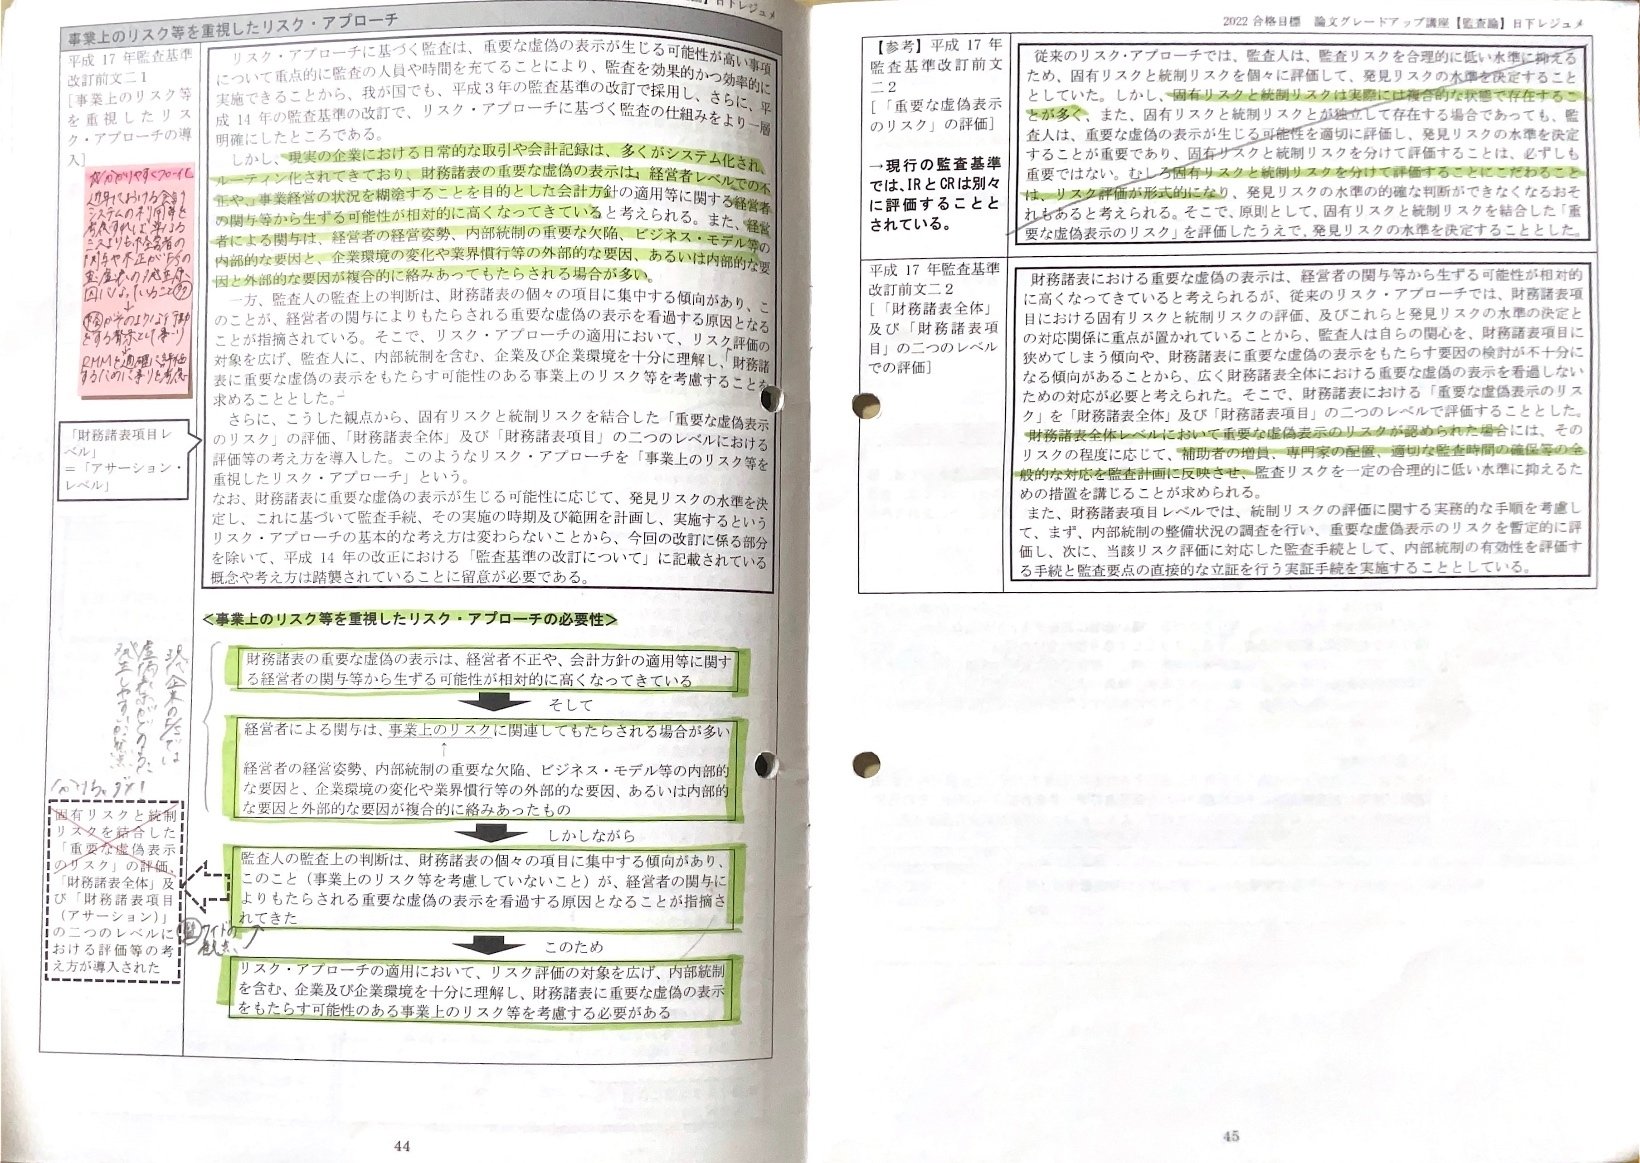 】日下レジュメ
事業上のリスク等を重視したリスク・アプローチ
平成 17 年監査基準
改訂前文二１
[事業上のリスク等
を重視したリス
ク・アプローチの導
入]
リスク・アプローチに基づく監査は、重要な虚偽の表示が生じる可能性が高い事項
について重点的に監査の人員や時間を充てることにより、監査を効果的かつ効率的に
実施できることから、我が国でも、平成３年の監査基準の改訂で採用し、さらに、平
成 14 年の監査基準の改訂で、リスク・アプローチに基づく監査の仕組みをより一層
明確にしたところである。
しかし、現実の企業における日常的な取引や会計記録は、多くがシステム化され、
ルーティン化されてきており、財務諸表の重要な虚偽の表示は、経営者レベルでの不
正や、事業経営の状況を糊塗することを目的とした会計方針の適用等に関する経営者
の関与等から生ずる可能性が相対的に高くなってきていると考えられる。また、経営
者による関与は、経営者の経営姿勢、内部統制の重要な欠陥、ビジネス・モデル等の
内部的な要因と、企業環境の変化や業界慣行等の外部的な要因、あるいは内部的な要
因と外部的な要因が複合的に絡みあってもたらされる場合が多い。
一方、監査人の監査上の判断は、財務諸表の個々の項目に集中する傾向があり、こ
のことが、経営者の関与によりもたらされる重要な虚偽の表示を看過する原因となる
ことが指摘されている。そこで、リスク・アプローチの適用において、リスク評価の
対象を広げ、監査人に、内部統制を含む、企業及び企業環境を十分に理解し、財務諸
表に重要な虚偽の表示をもたらす可能性のある事業上のリスク等を考慮することを
求めることとした。
さらに、こうした観点から、固有リスクと統制リスクを結合した「重要な虚偽表示
のリスク」の評価、「財務諸表全体」及び「財務諸表項目」の二つのレベルにおける
評価等の考え方を導入した。このようなリスク・アプローチを「事業上のリスク等を
重視したリスク・アプローチ」という。
なお、財務諸表に重要な虚偽の表示が生じる可能性に応じて、発見リスクの水準を決
定し、これに基づいて監査手続、その実施の時期及び範囲を計画し、実施するという
リスク・アプローチの基本的な考え方は変わらないことから、今回の改訂に係る部分
を除いて、平成 14 年の改正における「監査基準の改訂について」に記載されている
概念や考え方は踏襲されていることに留意が必要である。
「財務諸表項目レ
ベル」
＝「アサーション・
レベル」
＜事業上のリスク等を重視したリスク・アプローチの必要性＞
財務諸表の重要な虚偽の表示は、経営者不正や、会計方針の適用等に関す
る経営者の関与等から生ずる可能性が相対的に高くなってきている
そして
経営者による関与は、事業上のリスクに関連してもたらされる場合が多い
↑
経営者の経営姿勢、内部統制の重要な欠陥、ビジネス・モデル等の内部的
な要因と、企業環境の変化や業界慣行等の外部的な要因、あるいは内部的
な要因と外部的な要因が複合的に絡みあったもの
しかしながら
監査人の監査上の判断は、財務諸表の個々の項目に集中する傾向があり、
このこと（事業上のリスク等を考慮していないこと）が、経営者の関与に
よりもたらされる重要な虚偽の表示を看過する原因となることが指摘さ
れてきた
このため
リスク・アプローチの適用において、リスク評価の対象を広げ、内部統制
を含む、企業及び企業環境を十分に理解し、財務諸表に重要な虚偽の表示
をもたらす可能性のある事業上のリスク等を考慮する必要がある
固有リスクと統制
リスクを結合した
「重要な虚偽表示
のリスク」の評価、
「財務諸表全体」及
び「財務諸表項目
（アサーション）」
の二つのレベルに
おける評価等の考
え方が導入された
44
2022 合格目標　論文グレードアップ講座【監査論】日下レジュメ
【参考】平成 17 年
監査基準改訂前文
二２
[「重要な虚偽表示
のリスク」の評価]
→現行の監査基準
では、IR と CR は別々
に評価することと
されている。
従来のリスク・アプローチでは、監査人は、監査リスクを合理的に低い水準に抑える
ため、固有リスクと統制リスクを個々に評価して、発見リスクの水準を決定すること
としていた。しかし、固有リスクと統制リスクは実際には複合的な状態で存在するこ
とが多く、また、固有リスクと統制リスクとが独立して存在する場合であっても、監
査人は、重要な虚偽の表示が生じる可能性を適切に評価し、発見リスクの水準を決定
することが重要であり、固有リスクと統制リスクを分けて評価することは、必ずしも
重要ではない。むしろ固有リスクと統制リスクを分けて評価することにこだわること
は、リスク評価が形式的になり、発見リスクの水準の的確な判断ができなくなるおそ
れもあると考えられる。そこで、原則として、固有リスクと統制リスクを結合した「重
要な虚偽表示のリスク」を評価したうえで、発見リスクの水準を決定することとした。
平成 17 年監査基準
改訂前文二２
[「財務諸表全体」
及び「財務諸表項
目」の二つのレベル
での評価]
財務諸表における重要な虚偽の表示は、経営者の関与等から生ずる可能性が相対的
に高くなってきていると考えられるが、従来のリスク・アプローチでは、財務諸表項
目における固有リスクと統制リスクの評価、及びこれらと発見リスクの水準の決定と
の対応関係に重点が置かれていることから、監査人は自らの関心を、財務諸表項目に
狭めてしまう傾向や、財務諸表に重要な虚偽の表示をもたらす要因の検討が不十分に
なる傾向があることから、広く財務諸表全体における重要な虚偽の表示を看過しない
ための対応が必要と考えられた。そこで、財務諸表における「重要な虚偽表示のリス
ク」を「財務諸表全体」及び「財務諸表項目」の二つのレベルで評価することとした。
財務諸表全体レベルにおいて重要な虚偽表示のリスクが認められた場合には、その
リスクの程度に応じて、補助者の増員、専門家の配置、適切な監査時間の確保等の全
般的な対応を監査計画に反映させ、監査リスクを一定の合理的に低い水準に抑えるた
めの措置を講じることが求められる。
また、財務諸表項目レベルでは、統制リスクの評価に関する実務的な手順を考慮し
て、まず、内部統制の整備状況の調査を行い、重要な虚偽表示のリスクを暫定的に評
価し、次に、当該リスク評価に対応した監査手続として、内部統制の有効性を評価す
る手続と監査要点の直接的な立証を行う実証手続を実施することとしている。
45